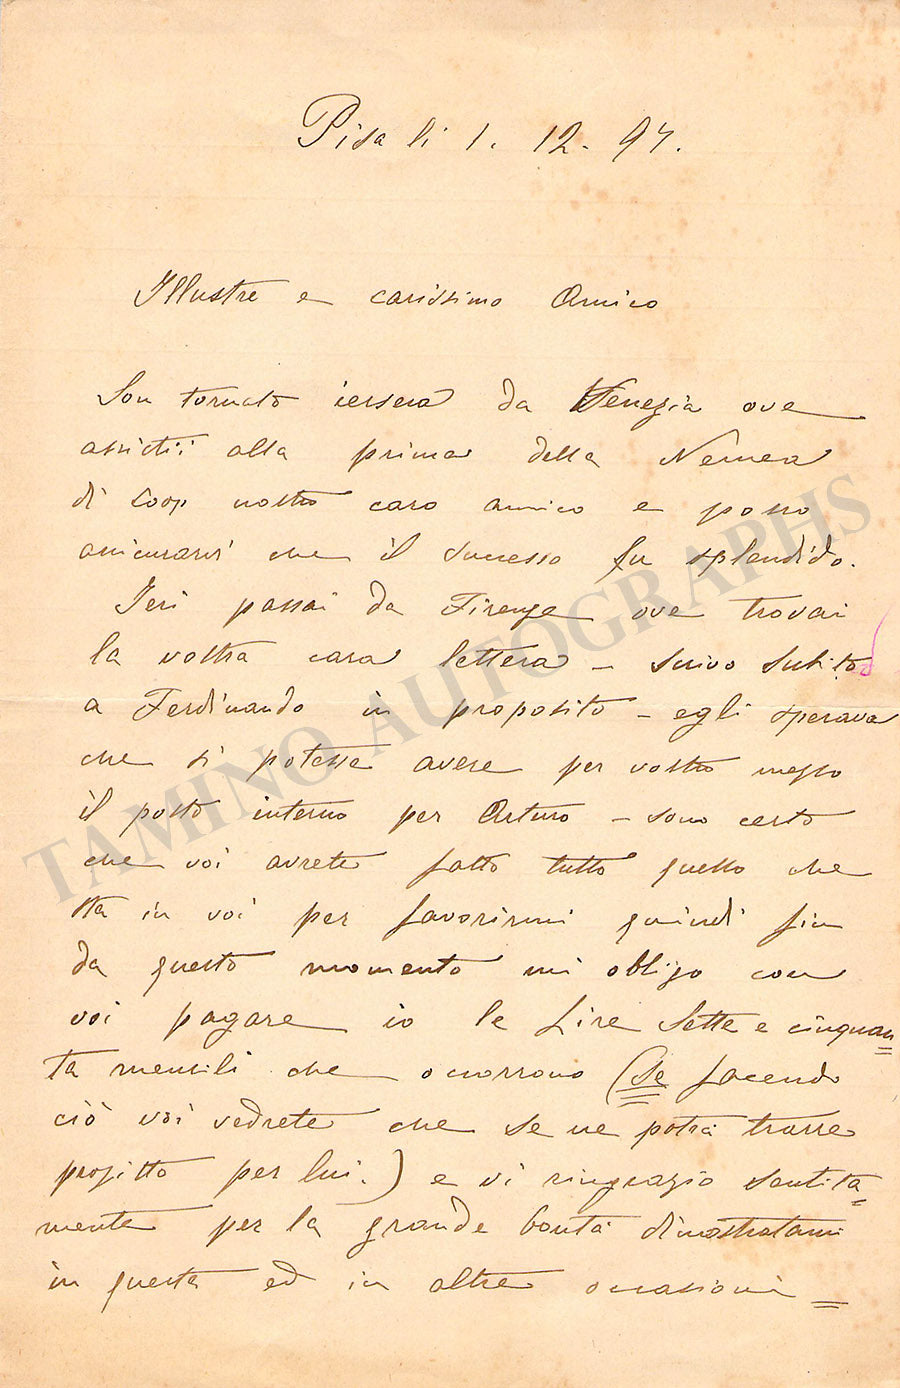 Pisa li 1. 12. 97.
Illustre e carissimo Amico
Son tornato iersera da Venezia ove
assistii alla prima della Nemea
di Coop nostro caro amico e posso
assicurarvi che il successo fu splendido.
Ieri passai da Firenze ove trovai
la vostra cara lettera – scrivo subito
a Ferdinando in proposito – egli sperava
che si potesse avere per vostro mezzo
il posto interno per Arturo – sono certo
che voi avrete fatto tutto quello che
sta in voi per favorirmi quindi fin
da questo momento mi obligo con
voi pagare io le Lire Sette e cinquan=
ta mensili che occorrono (se facendo
ciò voi vedrete che se ne potrà trarre
profitto per lui.) e vi ringrazio sentita=
mente per la grande bontà dimostratami
in questa ed in altre occasioni =
TAMINO AUTOGRAPHS